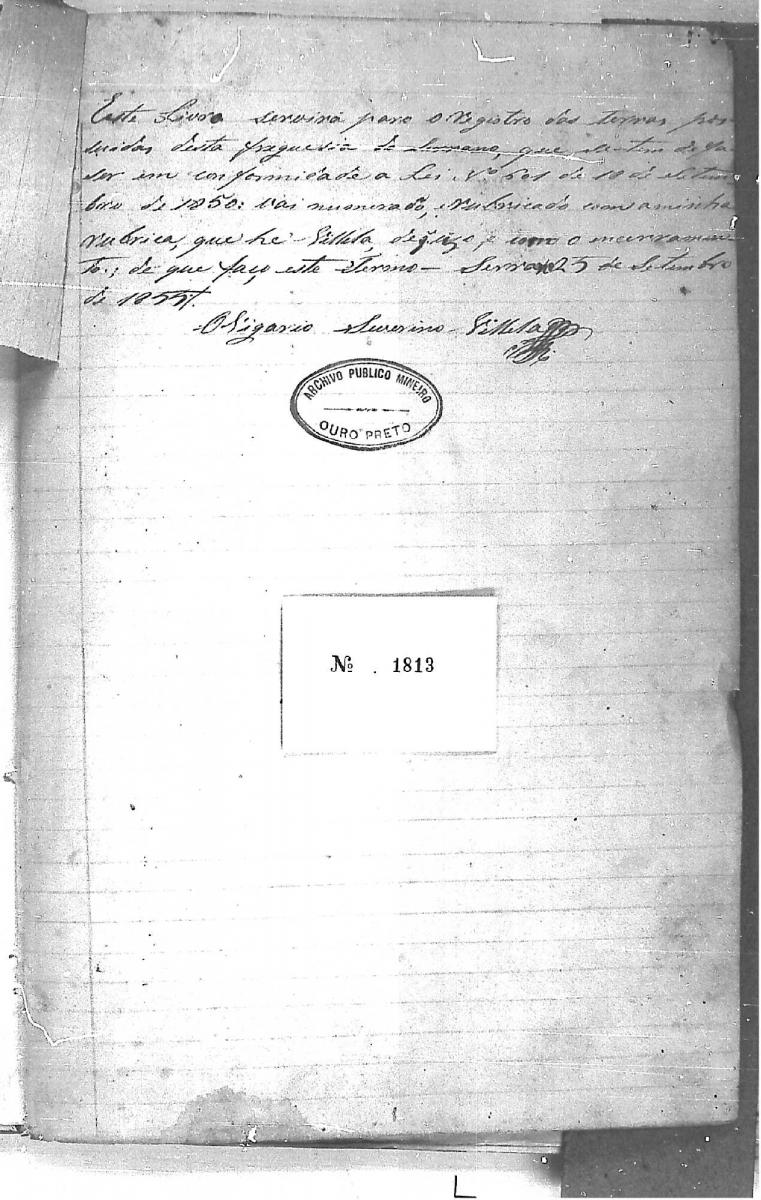 Este Livro servirá para o registro das terras pos
suidas desta freguesia de Serrano, que se tem de fa
ser em conformidade a Lei Nº 601 de 18 de Setem
bro de 1850: vai numerado, rubricado com a minha
rubrica, que he Villela, de que faço, e como o encerramen
to.; de que faço este termo— Serra 25 de Setembro
de 1855.
O Vigario Severino Villela
ARCHIVO PUBLICO MINEIRO
OURO PRETO
Nº . 1813